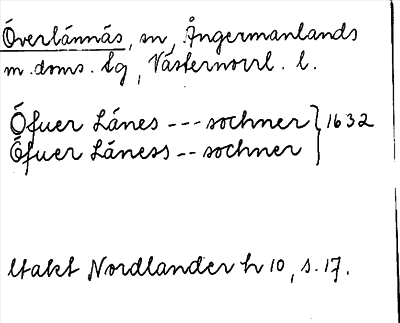 Överlännäs, sn, Ångermanlands
m. doms. lg, Västernorrl. l.
Öfuer Länes --- sochner } 1632
Öfuer Läness -- sochner
Utakt Nordlander h 10, s. 17.